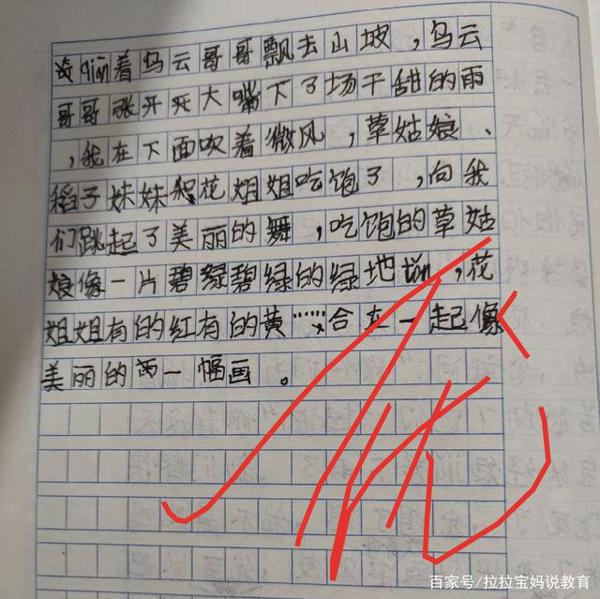 着乌云哥哥飘去山坡，乌云
哥哥张开大嘴下了场干甜的雨
，我在下面吹着微风，草姑娘、
稻子妹妹和花姐姐吃饱了，向我
们跳起了美丽的舞，吃饱的草姑
娘像一片碧绿碧绿的绿地tǎn，花
姐姐有的红有的黄……合在一起像
美丽的一幅画。
优
百家号/拉拉宝妈说教育